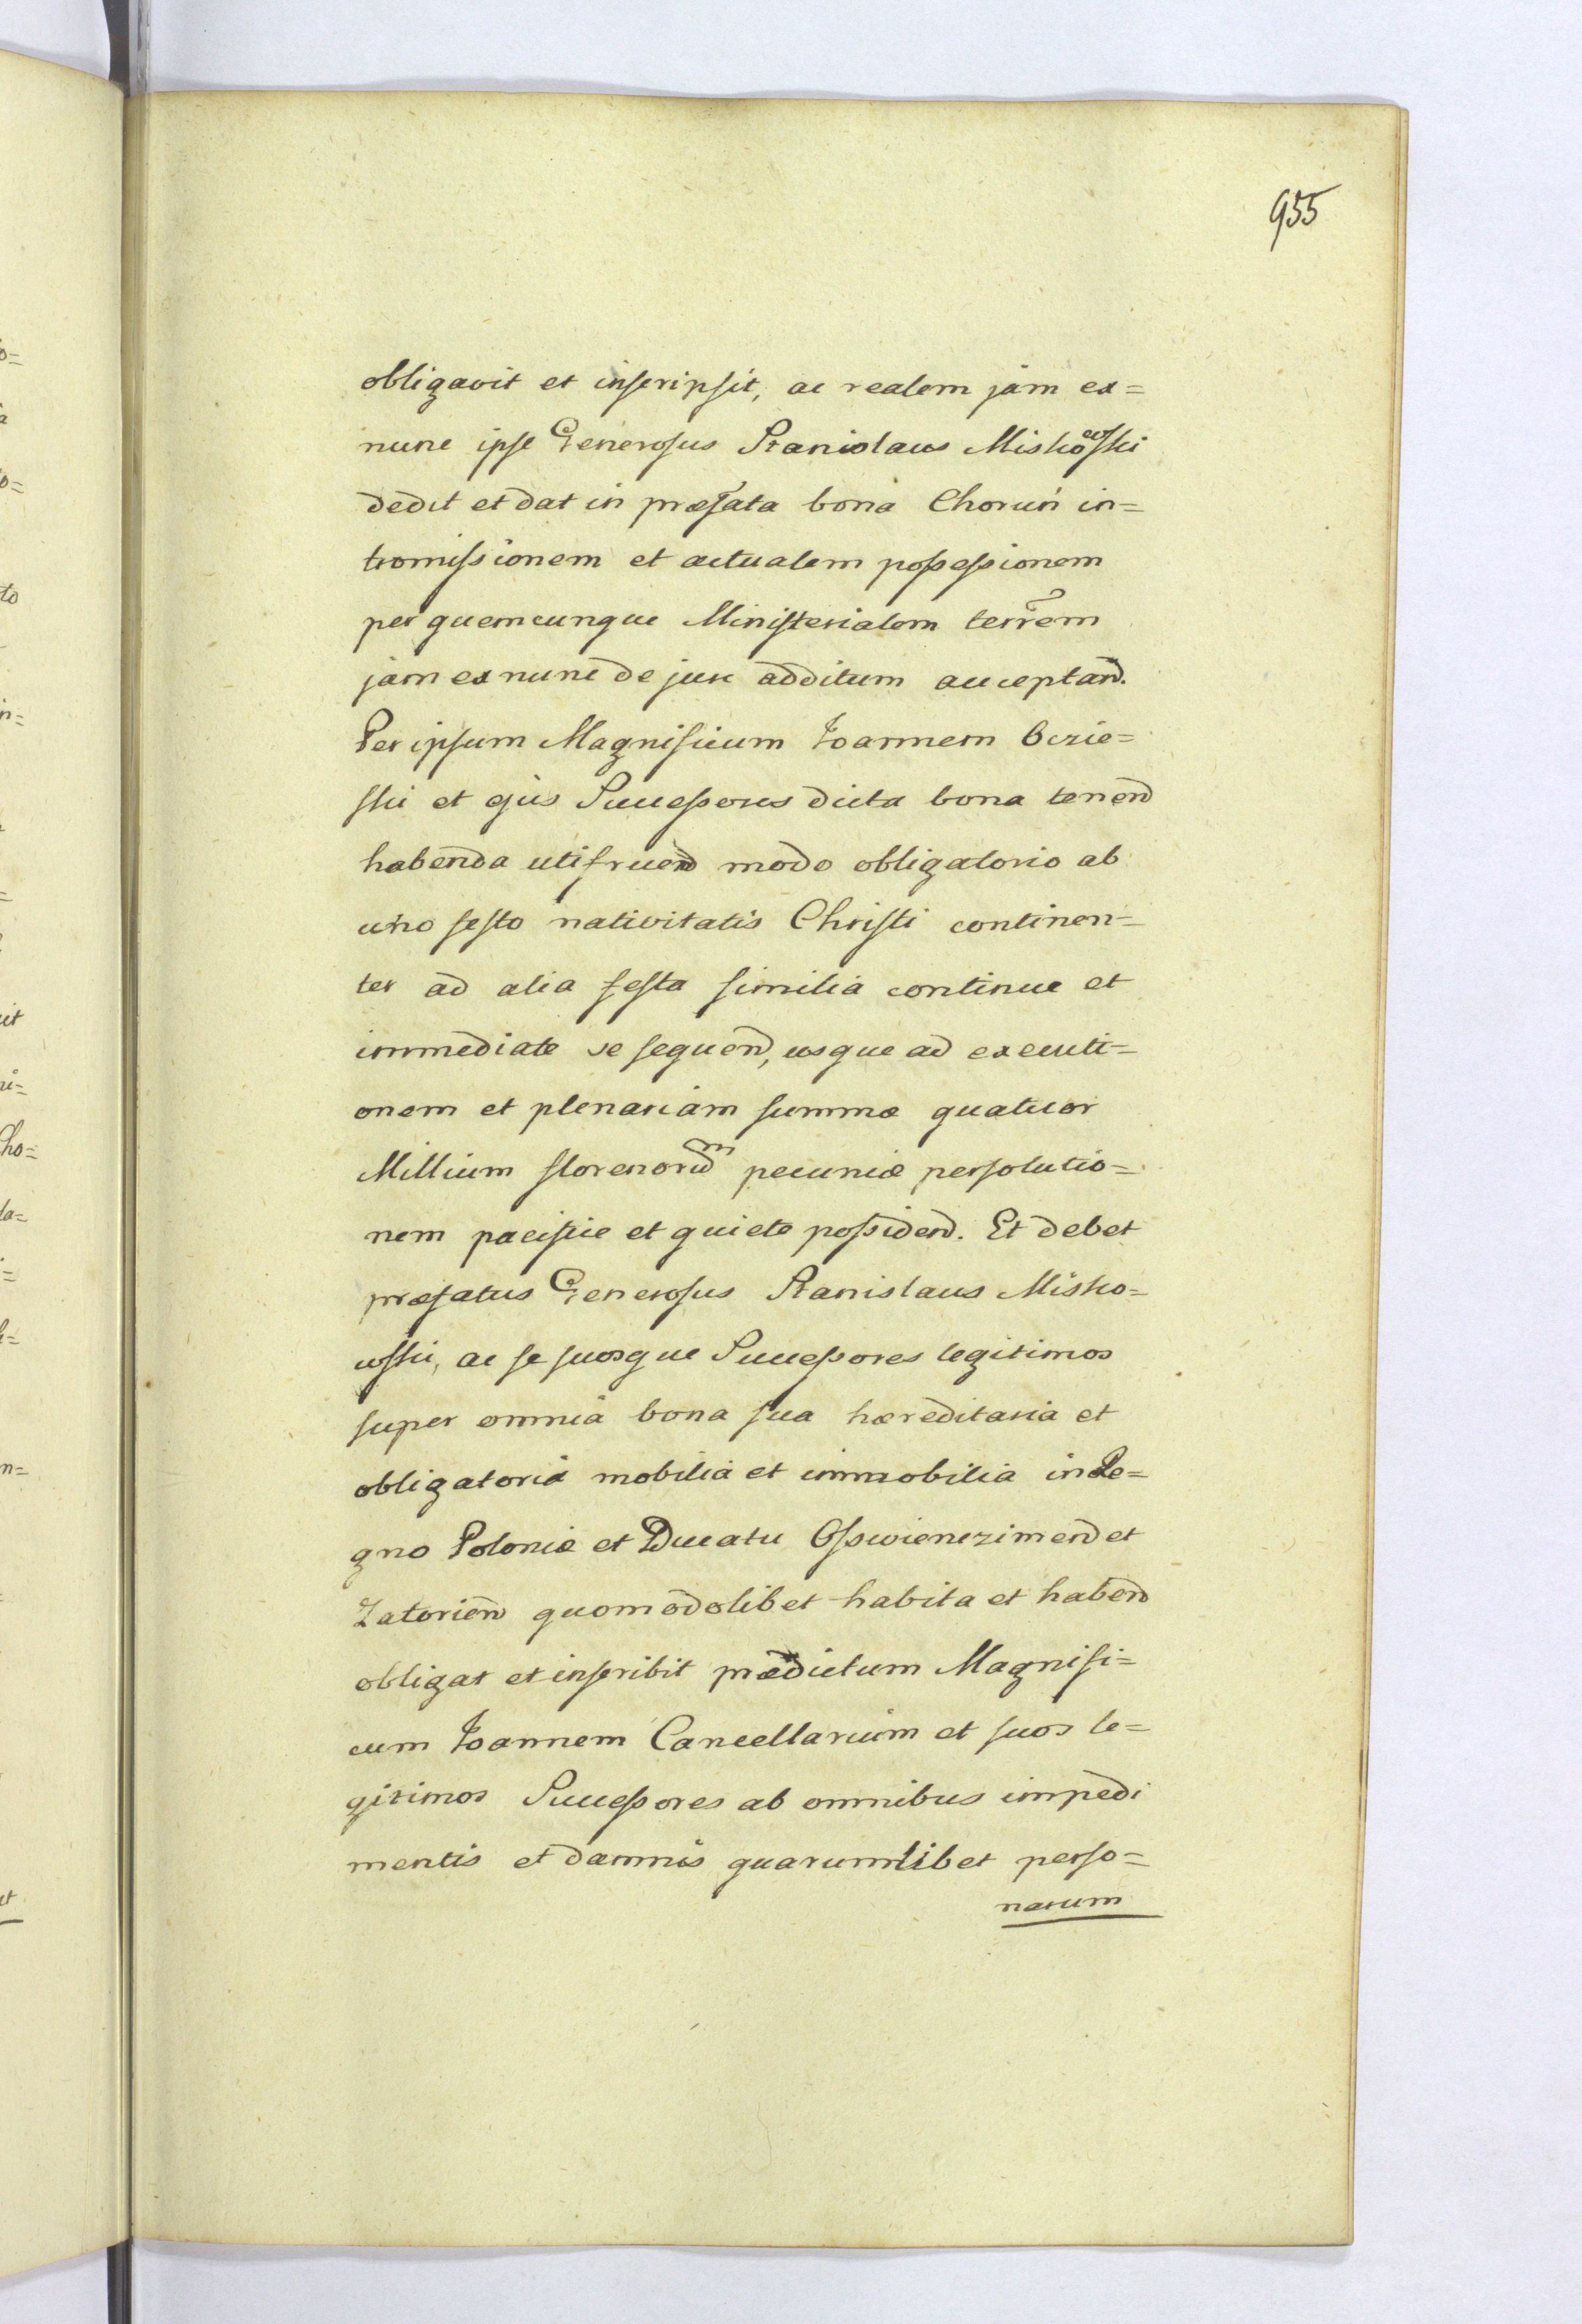 955
obligavit et inscripsit, ac realem jam ex=
nunc ipse Generosus Stanislaus Miskowski
dedit et dat in præfata bona Chorun in=
tromissionem et actualem possessionem
per quemcunque Ministerialem terrem
jam ex nunc de jure additum acceptand.
Per ipsum Magnificum Joannem Oczie=
ski et ejus Successores dicta bona tenend
habenda utifruend modo obligatorio ab
uno festo nativitatis Christi continen=
ter ad alia festa similia continue et
immediate se sequend, usque ad executi=
onem et plenariam summæ quatuor
Millium florenorum pecuniæ persolutio=
nem pacifice et quiete possidend. Et debet
præfatus Generosus Stanislaus Misko=
wski, ac se suosque Successores legitimos
super omnia bona sua hæreditaria et
obligatoria mobilia et immobilia in Re=
gno Poloniæ et Ducatu Osswienczimend et
Zatorien quomodolibet habita et habend
obligat et inscribit prædictum Magnifi=
cum Joannem Cancellarium et suos le=
gitimos Successores ab omnibus impedi
mentis et damnis quarumlibet perso=
narum